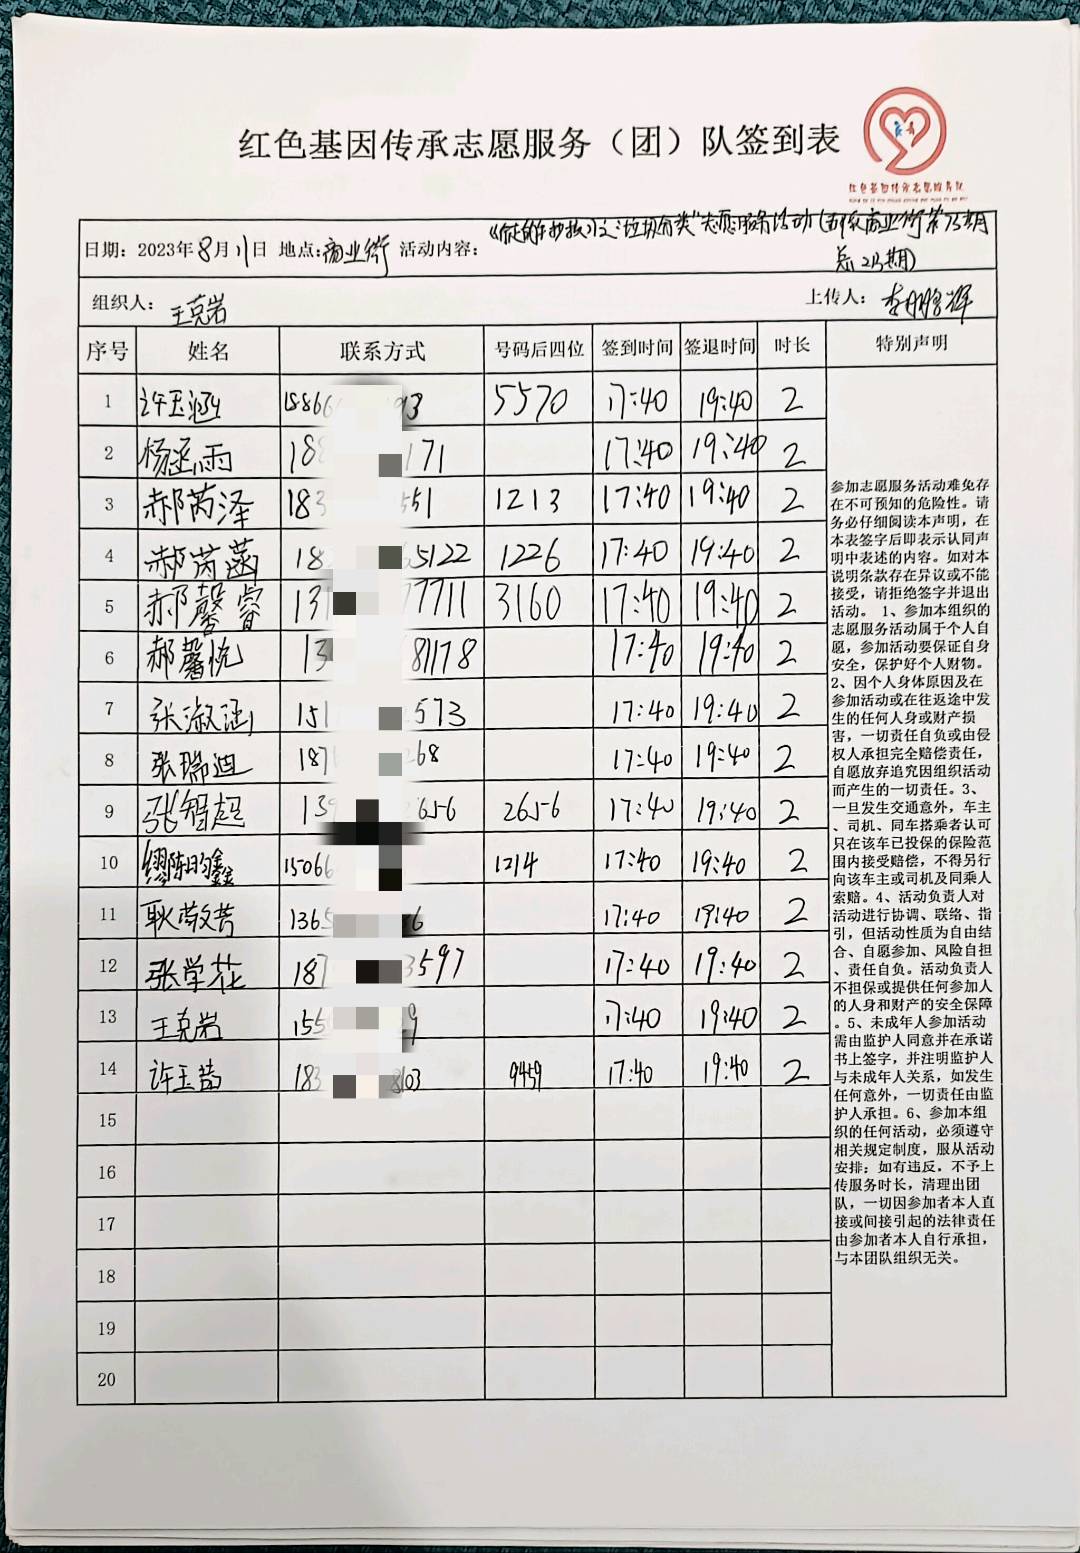 红色基因传承志愿服务（团）队签到表
日期：2023年8月11日 地点：商业街 活动内容：
垃圾分类"志愿服务活动
期）
组织人：王克岩
上传人：
序号 姓名 联系方式 号码后四位 签到时间 签退时间 时长 特别声明
1 许玉涵 5570 17:40 19:40 2
2 171 17:40 19:40 2
3 郝芮泽 183 551 1213 17:40 19:40 2
4 郝芮菡 18 65122 1226 17:40 19:40 2
5 郝馨睿 13 7711 3160 17:40 19:40 2
6 郝馨悦 13 81178 17:40 19:40 2
7 张淑涵 151 573 17:40 19:40 2
8 张瑞迪 187 268 17:40 19:40 2
9 张智超 139 2656 2656 17:40 19:40 2
10 缪陈昀鑫 15066 1214 17:40 19:40 2
11 耿敬芳 1365 6 17:40 19:40 2
12 张学花 187 3597 17:40 19:40 2
13 王克岩 155 9 17:40 19:40 2
14 许玉茜 183 8103 9459 17:40 19:40 2
15
16
17
18
19
20
参加志愿服务活动难免存
在不可预知的危险性。请
务必仔细阅读本声明，在
本表签字后即表示认同声
明中表述的内容。如对本
说明条款存在异议或不能
接受，请拒绝签字并退出
活动。 1、参加本组织的
志愿服务活动属于个人自
愿，参加活动要保证自身
安全，保护好个人财物。
2、因个人身体原因及在
参加活动或在往返途中发
生的任何人身或财产损
害，一切责任自负或由侵
权人承担完全赔偿责任，
自愿放弃追究因组织活动
而产生的一切责任。3、
一旦发生交通意外，车主
、司机、同车搭乘者认可
只在该车已投保的保险范
围内接受赔偿，不得另行
向该车主或司机及同乘人
索赔。4、活动负责人对
活动进行协调、联络、指
引，但活动性质为自由结
合、自愿参加、风险自担
、责任自负。活动负责人
不担保或提供任何参加人
的人身和财产的安全保障
。5、未成年人参加活动
需由监护人同意并在承诺
书上签字，并注明监护人
与未成年人关系，如发生
任何意外，一切责任由监
护人承担。6、参加本组
织的任何活动，必须遵守
相关规定制度，服从活动
安排；如有违反，不予上
传服务时长，清理出团
队，一切因参加者本人直
接或间接引起的法律责任
由参加者本人自行承担，
与本团队组织无关。